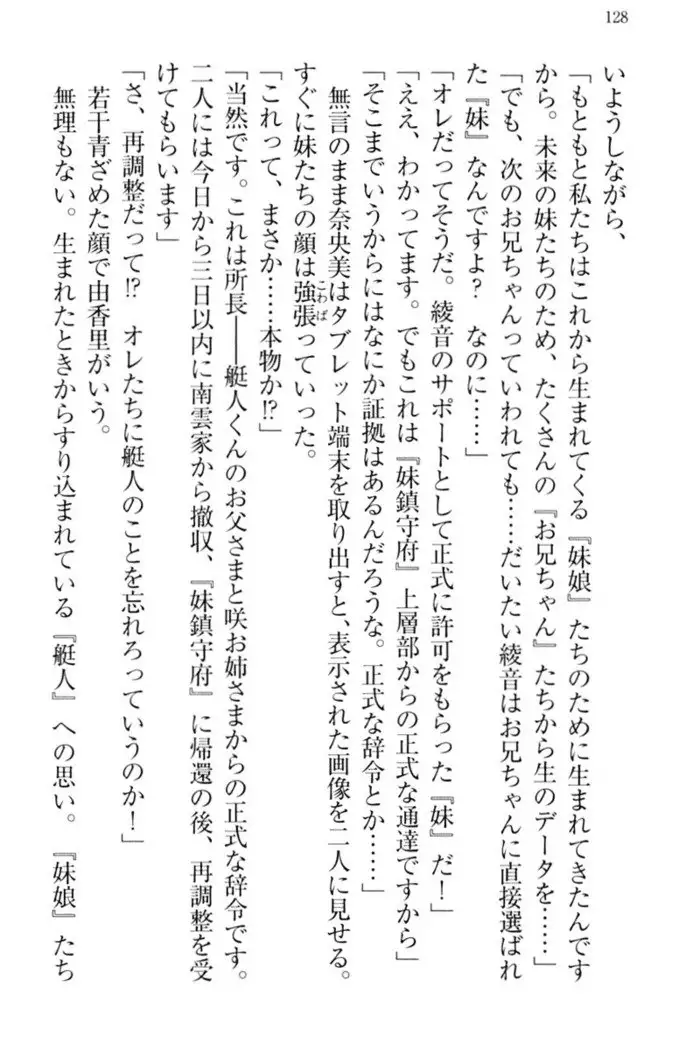 128
いようしながら、
「もともと私たちはこれから生まれてくる『妹娘』たちのために生まれてきたんです
から。未来の妹たちのため、たくさんの『お兄ちゃん』たちから生のデータを……」
「でも、次のお兄ちゃんっていわれても……だいたい綾音はお兄ちゃんに直接選ばれ
た『妹』なんですよ？　なのに……」
「オレだってそうだ。綾音のサポートとして正式に許可をもらった『妹』だ！」
「ええ、わかってます。でもこれは『妹鎮守府』上層部からの正式な通達ですから」
「そこまでいうからにはなにか証拠はあるんだろうな。正式な辞令とか……」
無言のまま奈央美はタブレット端末を取り出すと、表示された画像を二人に見せる。
すぐに妹たちの顔は強張こわばっていった。
「これって、まさか……本物か!?」
「当然です。これは所長――艇人くんのお父さまと咲お姉さまからの正式な辞令です。
二人には今日から三日以内に南雲家から撤収、『妹鎮守府』に帰還の後、再調整を受
けてもらいます」
「さ、再調整だって!?　オレたちに艇人のことを忘れろっていうのか！」
若干青ざめた顔で由香里がいう。
無理もない。生まれたときからすり込まれている『艇人』への思い。『妹娘』たち